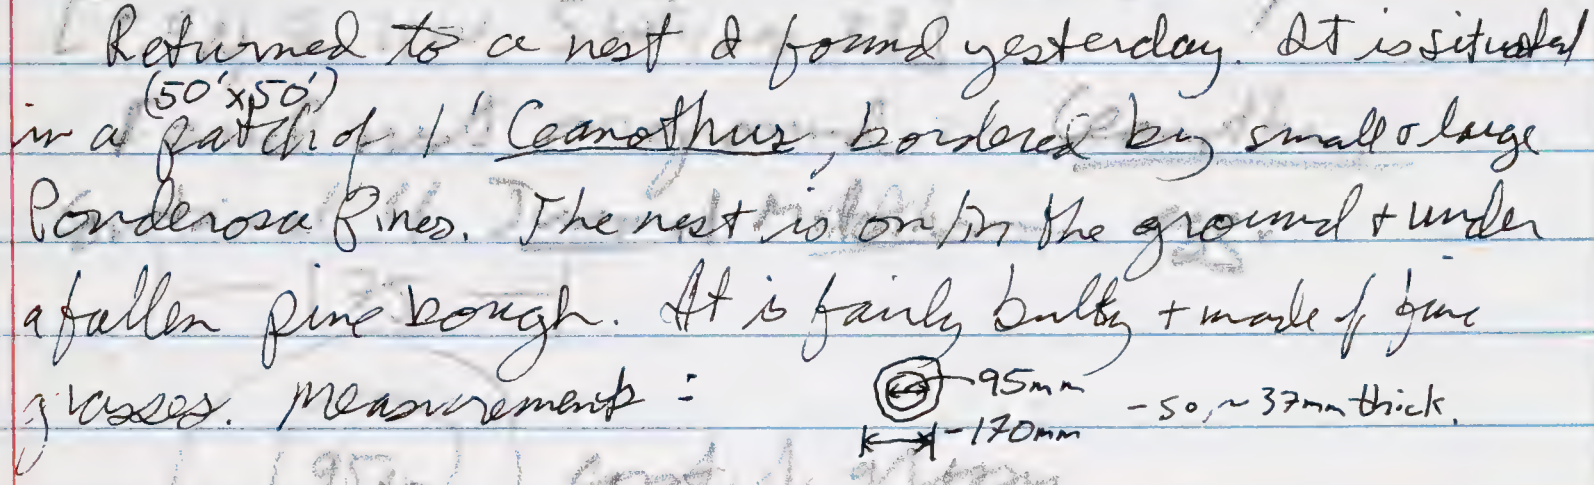 Returned to a nest I found yesterday. It is situated
(50'x50')
in a patch of 1' Ceanothus, bordered by small & large
Ponderosa Pines. The nest is on/in the ground + under
a fallen pine bough. It is fairly bulky + made of fine
grasses. Measurements:
95mm
-170mm
- so, ~37mm thick.